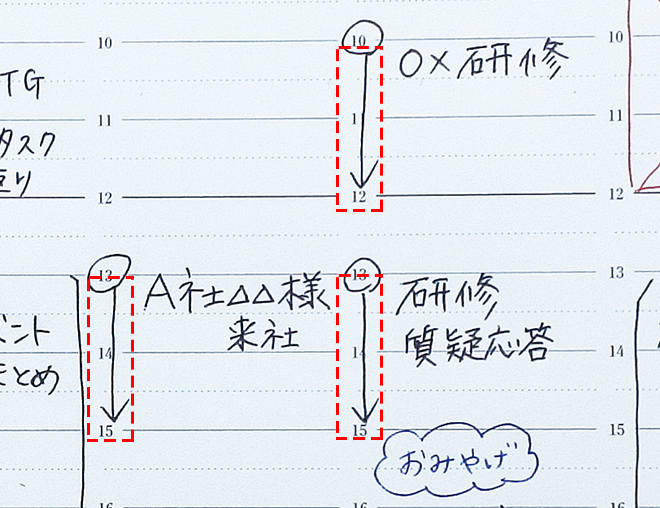 10 10 10
○×研修
TG
11 11 11
タスク
12 12 12
13 13 13
A社△△様
来社
研修
質疑応答
ント
まとめ
14 14 14
15 15 15
おみやげ
16 16